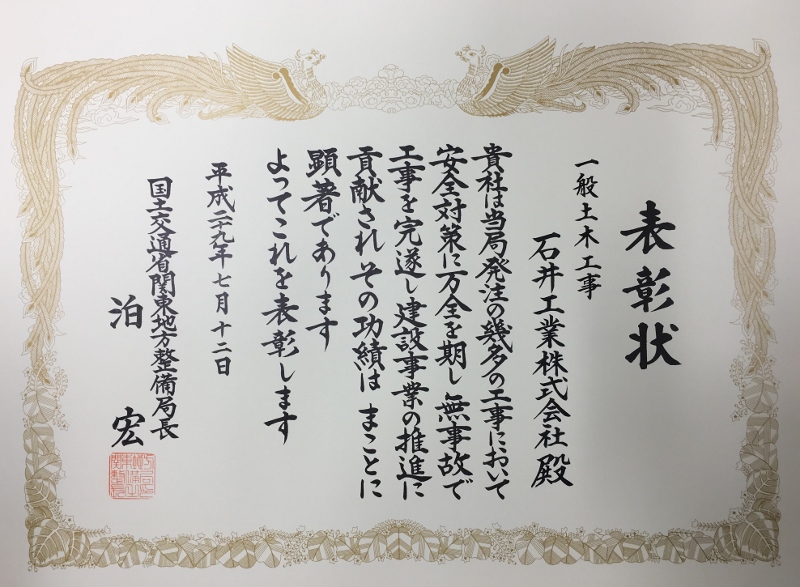 表彰状
一般土木工事
石井工業株式会社 殿
貴社は当局発注の幾多の工事において
安全対策に万全を期し 無事故で
工事を完遂し建設事業の推進に
貢献され その功績は まことに
顕著であります
よってこれを表彰します
平成二十九年七月十二日
国土交通省関東地方整備局長
泊 宏